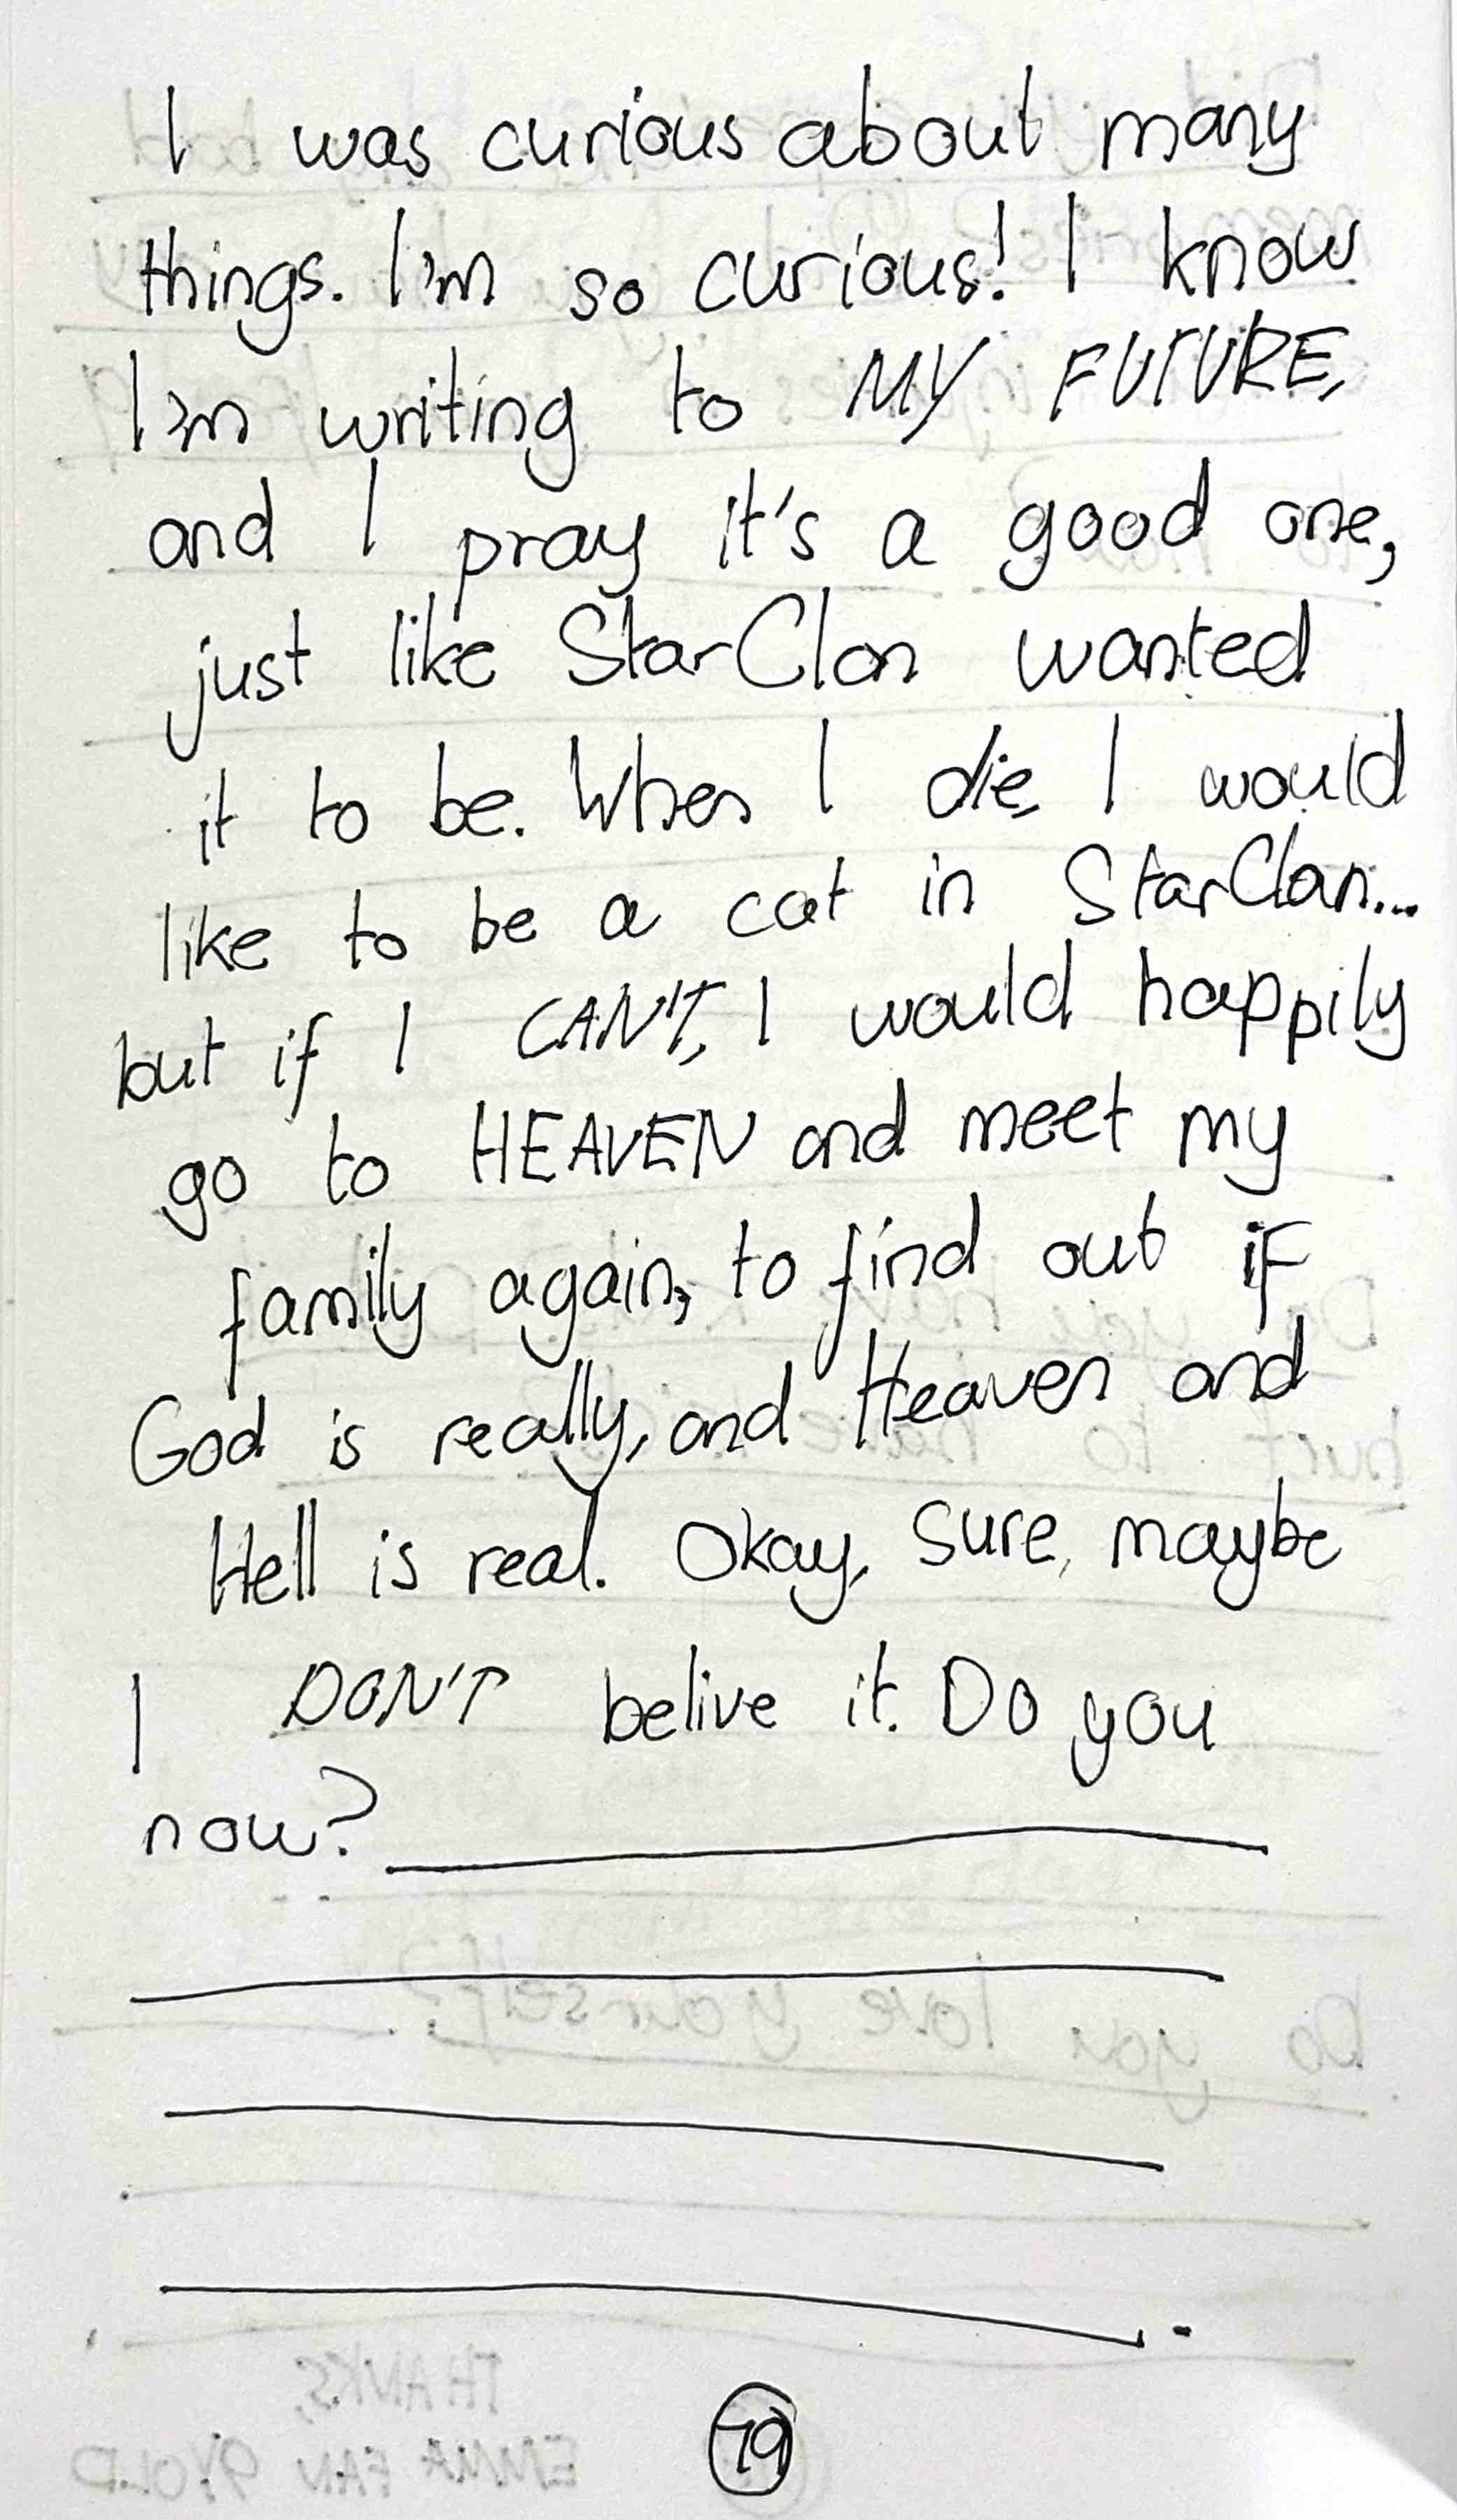 I was curious about many
things. I'm so curious! I know
I'm writing to MY FUTURE,
and I pray it's a good one,
just like StarClan wanted
it to be. When I die, I would
like to be a cat in StarClan...
but if I CAN'T, I would happily
go to HEAVEN and meet my
family again, to find out if
God is really, and Heaven and
Hell is real. Okay, sure, maybe
I DON'T belive it. Do you
now?
Do you love yourself?
THANKS,
EMMA FAN 9YOLD
79